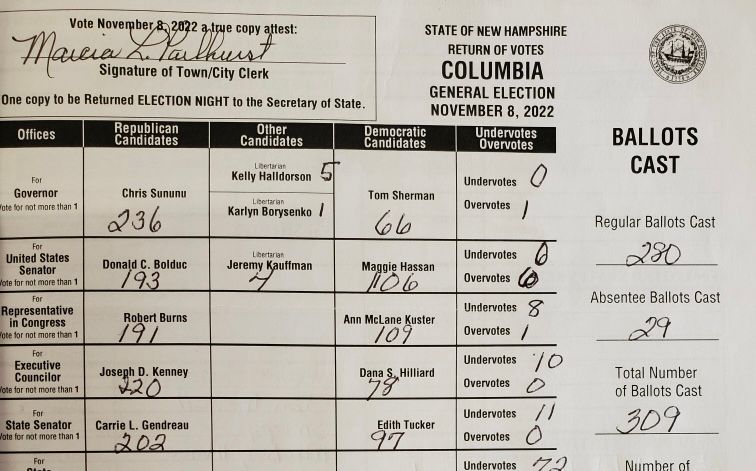 Vote November 8, 2022 a true copy attest:
Marcia L. Parkhurst
Signature of Town/City Clerk
One copy to be Returned ELECTION NIGHT to the Secretary of State.
STATE OF NEW HAMPSHIRE
RETURN OF VOTES
COLUMBIA
GENERAL ELECTION
NOVEMBER 8, 2022
Offices Republican Candidates Other Candidates Democratic Candidates Undervotes Overvotes
For
Governor
Vote for not more than 1
Chris Sununu
236
Libertarian
Kelly Halldorson 5
Libertarian
Karlyn Borysenko 1
Tom Sherman
66
Undervotes 0
Overvotes 1
For
United States
Senator
Vote for not more than 1
Donald C. Bolduc
193
Libertarian
Jeremy Kauffman
4
Maggie Hassan
106
Undervotes 6
Overvotes 0
For
Representative
in Congress
Vote for not more than 1
Robert Burns
191
Ann McLane Kuster
109
Undervotes 8
Overvotes 1
For
Executive
Councilor
Vote for not more than 1
Joseph D. Kenney
220
Dana S. Hilliard
78
Undervotes 10
Overvotes 0
For
State Senator
Vote for not more than 1
Carrie L. Gendreau
202
Edith Tucker
97
Undervotes 11
Overvotes 0
For
Undervotes 72
BALLOTS
CAST
Regular Ballots Cast
280
Absentee Ballots Cast
29
Total Number
of Ballots Cast
309
Number of